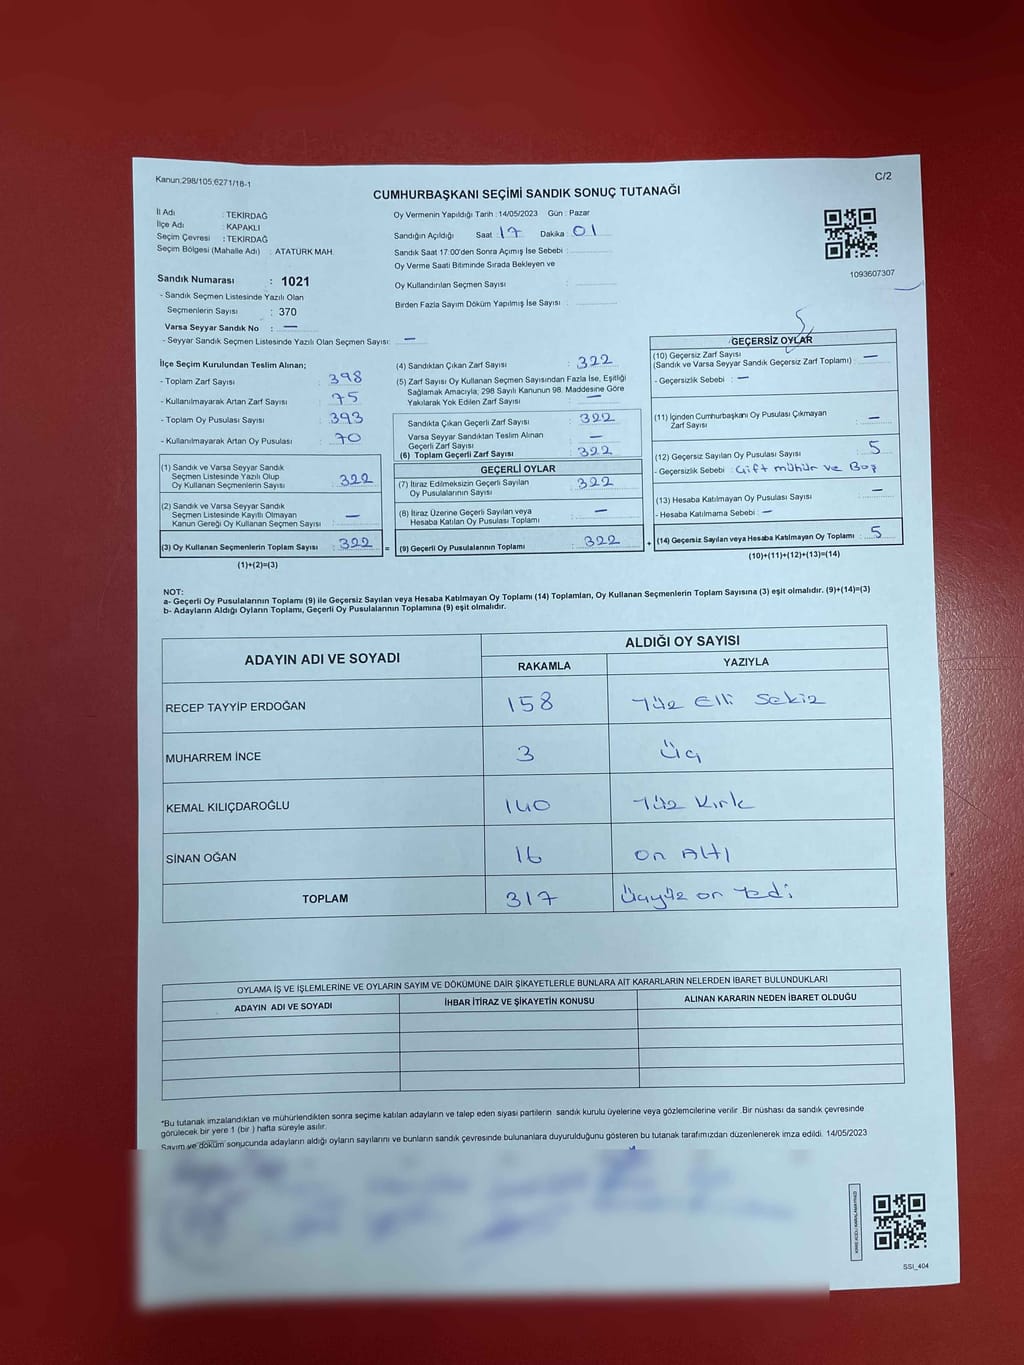 Kanun;298/105;6271/18-1
C/2
CUMHURBAŞKANI SEÇİMİ SANDIK SONUÇ TUTANAĞI
İl Adı : TEKİRDAĞ
İlçe Adı : KAPAKLI
Seçim Çevresi : TEKİRDAĞ
Seçim Bölgesi (Mahalle Adı) : ATATÜRK MAH.
Oy Vermenin Yapıldığı Tarih : 14/05/2023 Gün : Pazar
Sandığın Açıldığı Saat : 17 Dakika : 01
Sandık Saat 17:00'den Sonra Açımış İse Sebebi :
Oy Verme Saati Bitiminde Sırada Bekleyen ve
Oy Kullandırılan Seçmen Sayısı :
Birden Fazla Sayım Döküm Yapılmış İse Sayısı :
1093607307
Sandık Numarası : 1021
- Sandık Seçmen Listesinde Yazılı Olan
Seçmenlerin Sayısı : 370
Varsa Seyyar Sandık No : —
- Seyyar Sandık Seçmen Listesinde Yazılı Olan Seçmen Sayısı: —
İlçe Seçim Kurulundan Teslim Alınan;
- Toplam Zarf Sayısı : 398
- Kullanılmayarak Artan Zarf Sayısı : 75
- Toplam Oy Pusulası Sayısı : 393
- Kullanılmayarak Artan Oy Pusulası : 70
(1) Sandık ve Varsa Seyyar Sandık
Seçmen Listesinde Yazılı Olup
Oy Kullanan Seçmenlerin Sayısı : 322
(2) Sandık ve Varsa Seyyar Sandık
Seçmen Listesinde Kayıtlı Olmayan
Kanun Gereği Oy Kullanan Seçmen Sayısı : —
(3) Oy Kullanan Seçmenlerin Toplam Sayısı : 322 =
(1)+(2)=(3)
(4) Sandıktan Çıkan Zarf Sayısı : 322
(5) Zarf Sayısı Oy Kullanan Seçmen Sayısından Fazla İse, Eşitliği
Sağlamak Amacıyla; 298 Sayılı Kanunun 98. Maddesine Göre
Yakılarak Yok Edilen Zarf Sayısı : —
Sandıkta Çıkan Geçerli Zarf Sayısı : 322
Varsa Seyyar Sandıktan Teslim Alınan
Geçerli Zarf Sayısı : —
(6) Toplam Geçerli Zarf Sayısı : 322
GEÇERLİ OYLAR
(7) İtiraz Edilmeksizin Geçerli Sayılan
Oy Pusulalarının Sayısı : 322
(8) İtiraz Üzerine Geçerli Sayılan veya
Hesaba Katılan Oy Pusulası Toplamı : —
(9) Geçerli Oy Pusulalarının Toplamı : 322 +
5
GEÇERSİZ OYLAR
(10) Geçersiz Zarf Sayısı
(Sandık ve Varsa Seyyar Sandık Geçersiz Zarf Toplamı) : —
- Geçersizlik Sebebi : —
(11) İçinden Cumhurbaşkanı Oy Pusulası Çıkmayan
Zarf Sayısı : —
(12) Geçersiz Sayılan Oy Pusulası Sayısı : 5
- Geçersizlik Sebebi : Çift mühür ve Boş
(13) Hesaba Katılmayan Oy Pusulası Sayısı : —
- Hesaba Katılmama Sebebi : —
(14) Geçersiz Sayılan veya Hesaba Katılmayan Oy Toplamı : 5
(10)+(11)+(12)+(13)=(14)
NOT:
a- Geçerli Oy Pusulalarının Toplamı (9) ile Geçersiz Sayılan veya Hesaba Katılmayan Oy Toplamı (14) Toplamları, Oy Kullanan Seçmenlerin Toplam Sayısına (3) eşit olmalıdır. (9)+(14)=(3)
b- Adayların Aldığı Oyların Toplamı, Geçerli Oy Pusulalarının Toplamına (9) eşit olmalıdır.
ADAYIN ADI VE SOYADI
ALDIĞI OY SAYISI
RAKAMLA YAZIYLA
RECEP TAYYİP ERDOĞAN 158 Yüz Elli Sekiz
MUHARREM İNCE 3 Üç
KEMAL KILIÇDAROĞLU 140 Yüz Kırk
SİNAN OĞAN 16 On Altı
TOPLAM 317 Üçyüz on Yedi
OYLAMA İŞ VE İŞLEMLERİNE VE OYLARIN SAYIM VE DÖKÜMÜNE DAİR ŞİKAYETLERLE BUNLARA AİT KARARLARIN NELERDEN İBARET BULUNDUKLARI
ADAYIN ADI VE SOYADI İHBAR İTİRAZ VE ŞİKAYETİN KONUSU ALINAN KARARIN NEDEN İBARET OLDUĞU
*Bu tutanak imzalandıktan ve mühürlendikten sonra seçime katılan adayların ve talep eden siyasi partilerin sandık kurulu üyelerine veya gözlemcilerine verilir .Bir nüshası da sandık çevresinde
görülecek bir yere 1 (bir ) hafta süreyle asılır.
Sayım ve döküm sonucunda adayların aldığı oyların sayılarını ve bunların sandık çevresinde bulunanlara duyurulduğunu gösteren bu tutanak tarafımızdan düzenlenerek imza edildi. 14/05/2023
SSI_404